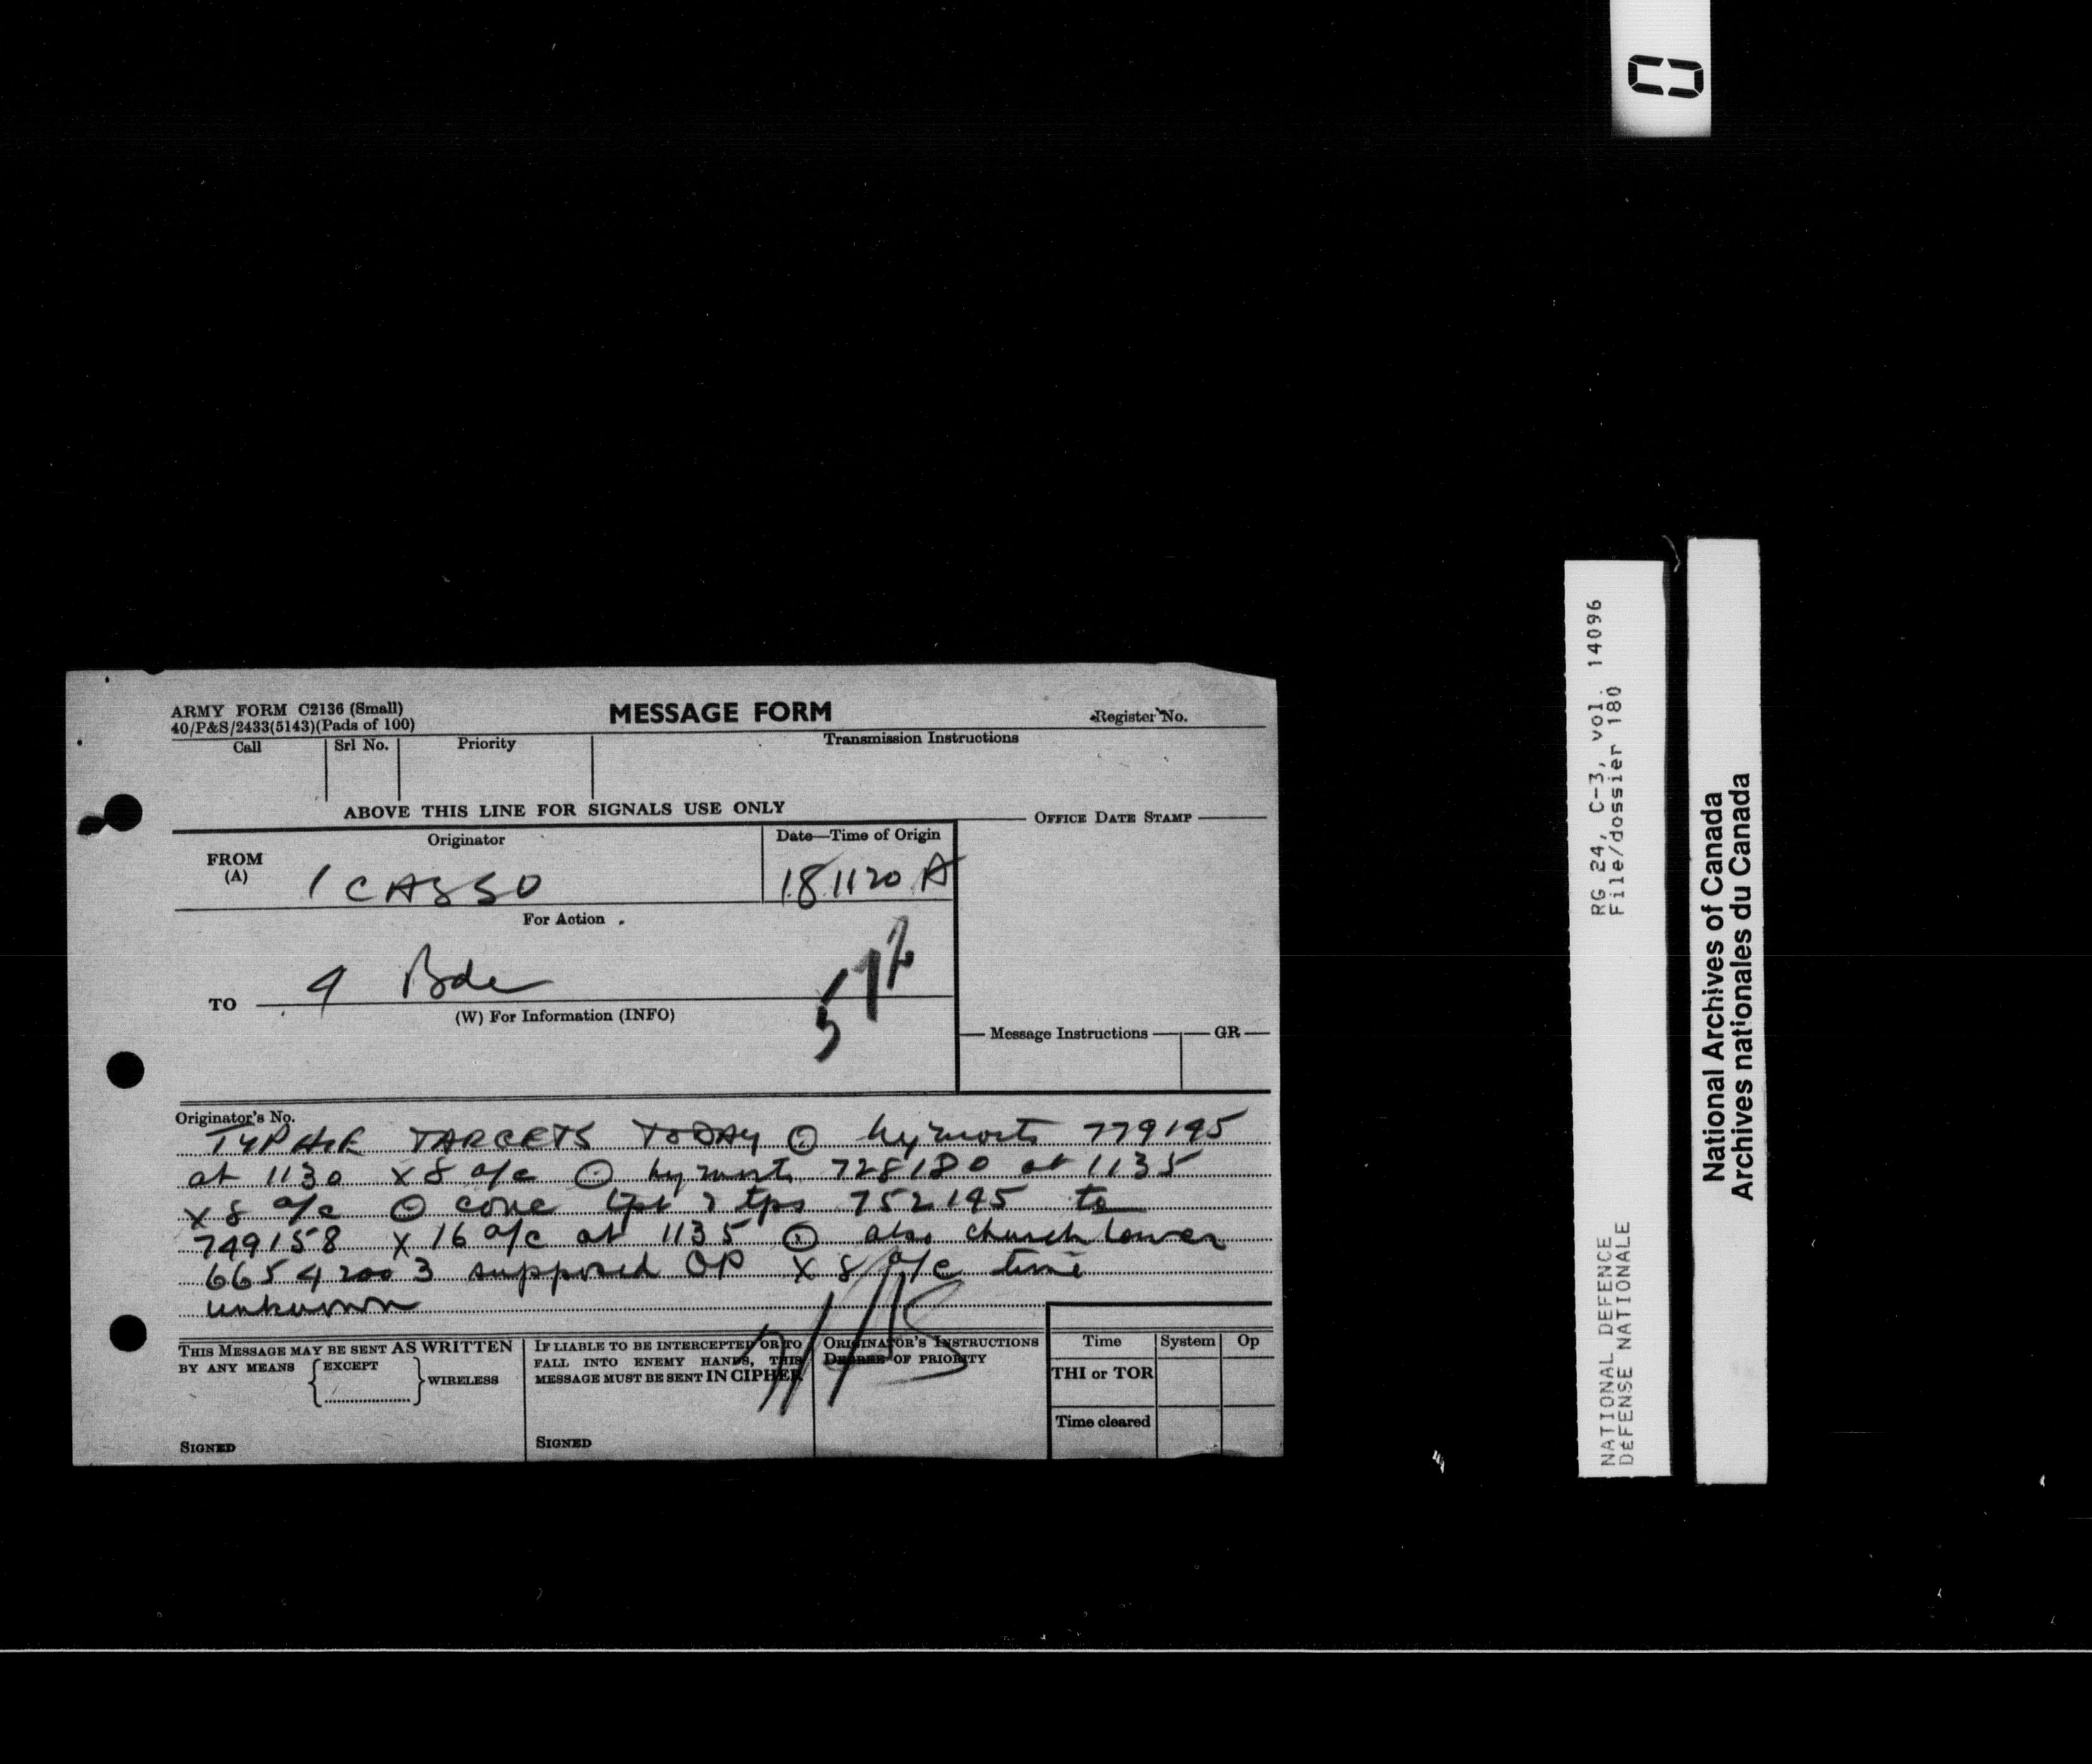 ARMY FORM C2136 (Small)
40/P&S/2433(5143)(Pads of 100)
MESSAGE FORM
Register No.
Call
Srl No.
Priority
Transmission Instructions
ABOVE THIS LINE FOR SIGNALS USE ONLY
OFFICE DATE STAMP
FROM
(A)
Originator
Date—Time of Origin
1 CASSO
181120 A
For Action
4 Bde
TO
(W) For Information (INFO)
Message Instructions
GR
Originator's No.
TARGETS TODAY ⊙ hy morts 779195
at 1130 x 8 a/c ⊙ hy morts 728180 at 1135
x 8 a/c ⊙ conc tpt & tps 752195 to
749158 x 16 a/c at 1135 ⊙ also church tower
66542003 supposed OP x 8 a/c time
unknown
THIS MESSAGE MAY BE SENT AS WRITTEN
BY ANY MEANS
EXCEPT
WIRELESS
SIGNED
IF LIABLE TO BE INTERCEPTED OR TO
FALL INTO ENEMY HANDS, THIS
MESSAGE MUST BE SENT IN CIPHER
SIGNED
ORIGINATOR'S INSTRUCTIONS
DEGREE OF PRIORITY
Time
System
Op
THI or TOR
Time cleared
RG 24, C-3, vol. 14096
File/dossier 180
NATIONAL DEFENCE
DéFENSE NATIONALE
National Archives of Canada
Archives nationales du Canada